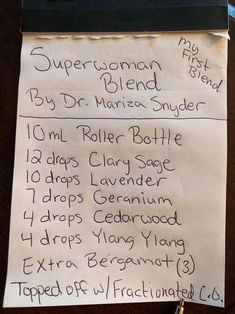 my
First
Blend
Superwoman
Blend
By Dr. Mariza Snyder
10 mL Roller Bottle
12 drops Clary Sage
10 drops Lavender
7 drops Geranium
4 drops Cedarwood
4 drops Ylang Ylang
Extra Bergamot (3)
Topped off w/Fractionated C.O.